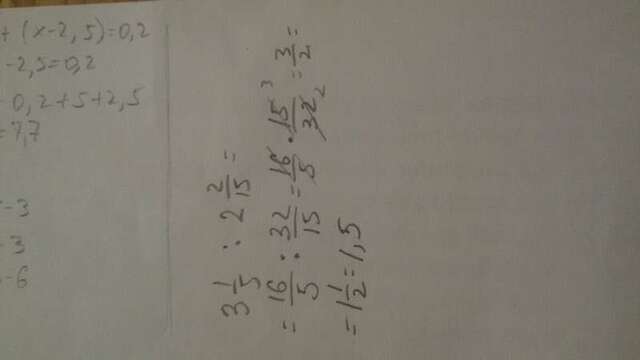 + (x-2,5)=0,2
-2,5=0,2
0,2+5+2,5
=7,7
-3
-3
-6
3 1/5 : 2 2/15 =
= 16/5 : 32/15 = 16/5 · 15/32 = 3/2 =
= 1 1/2 = 1,5